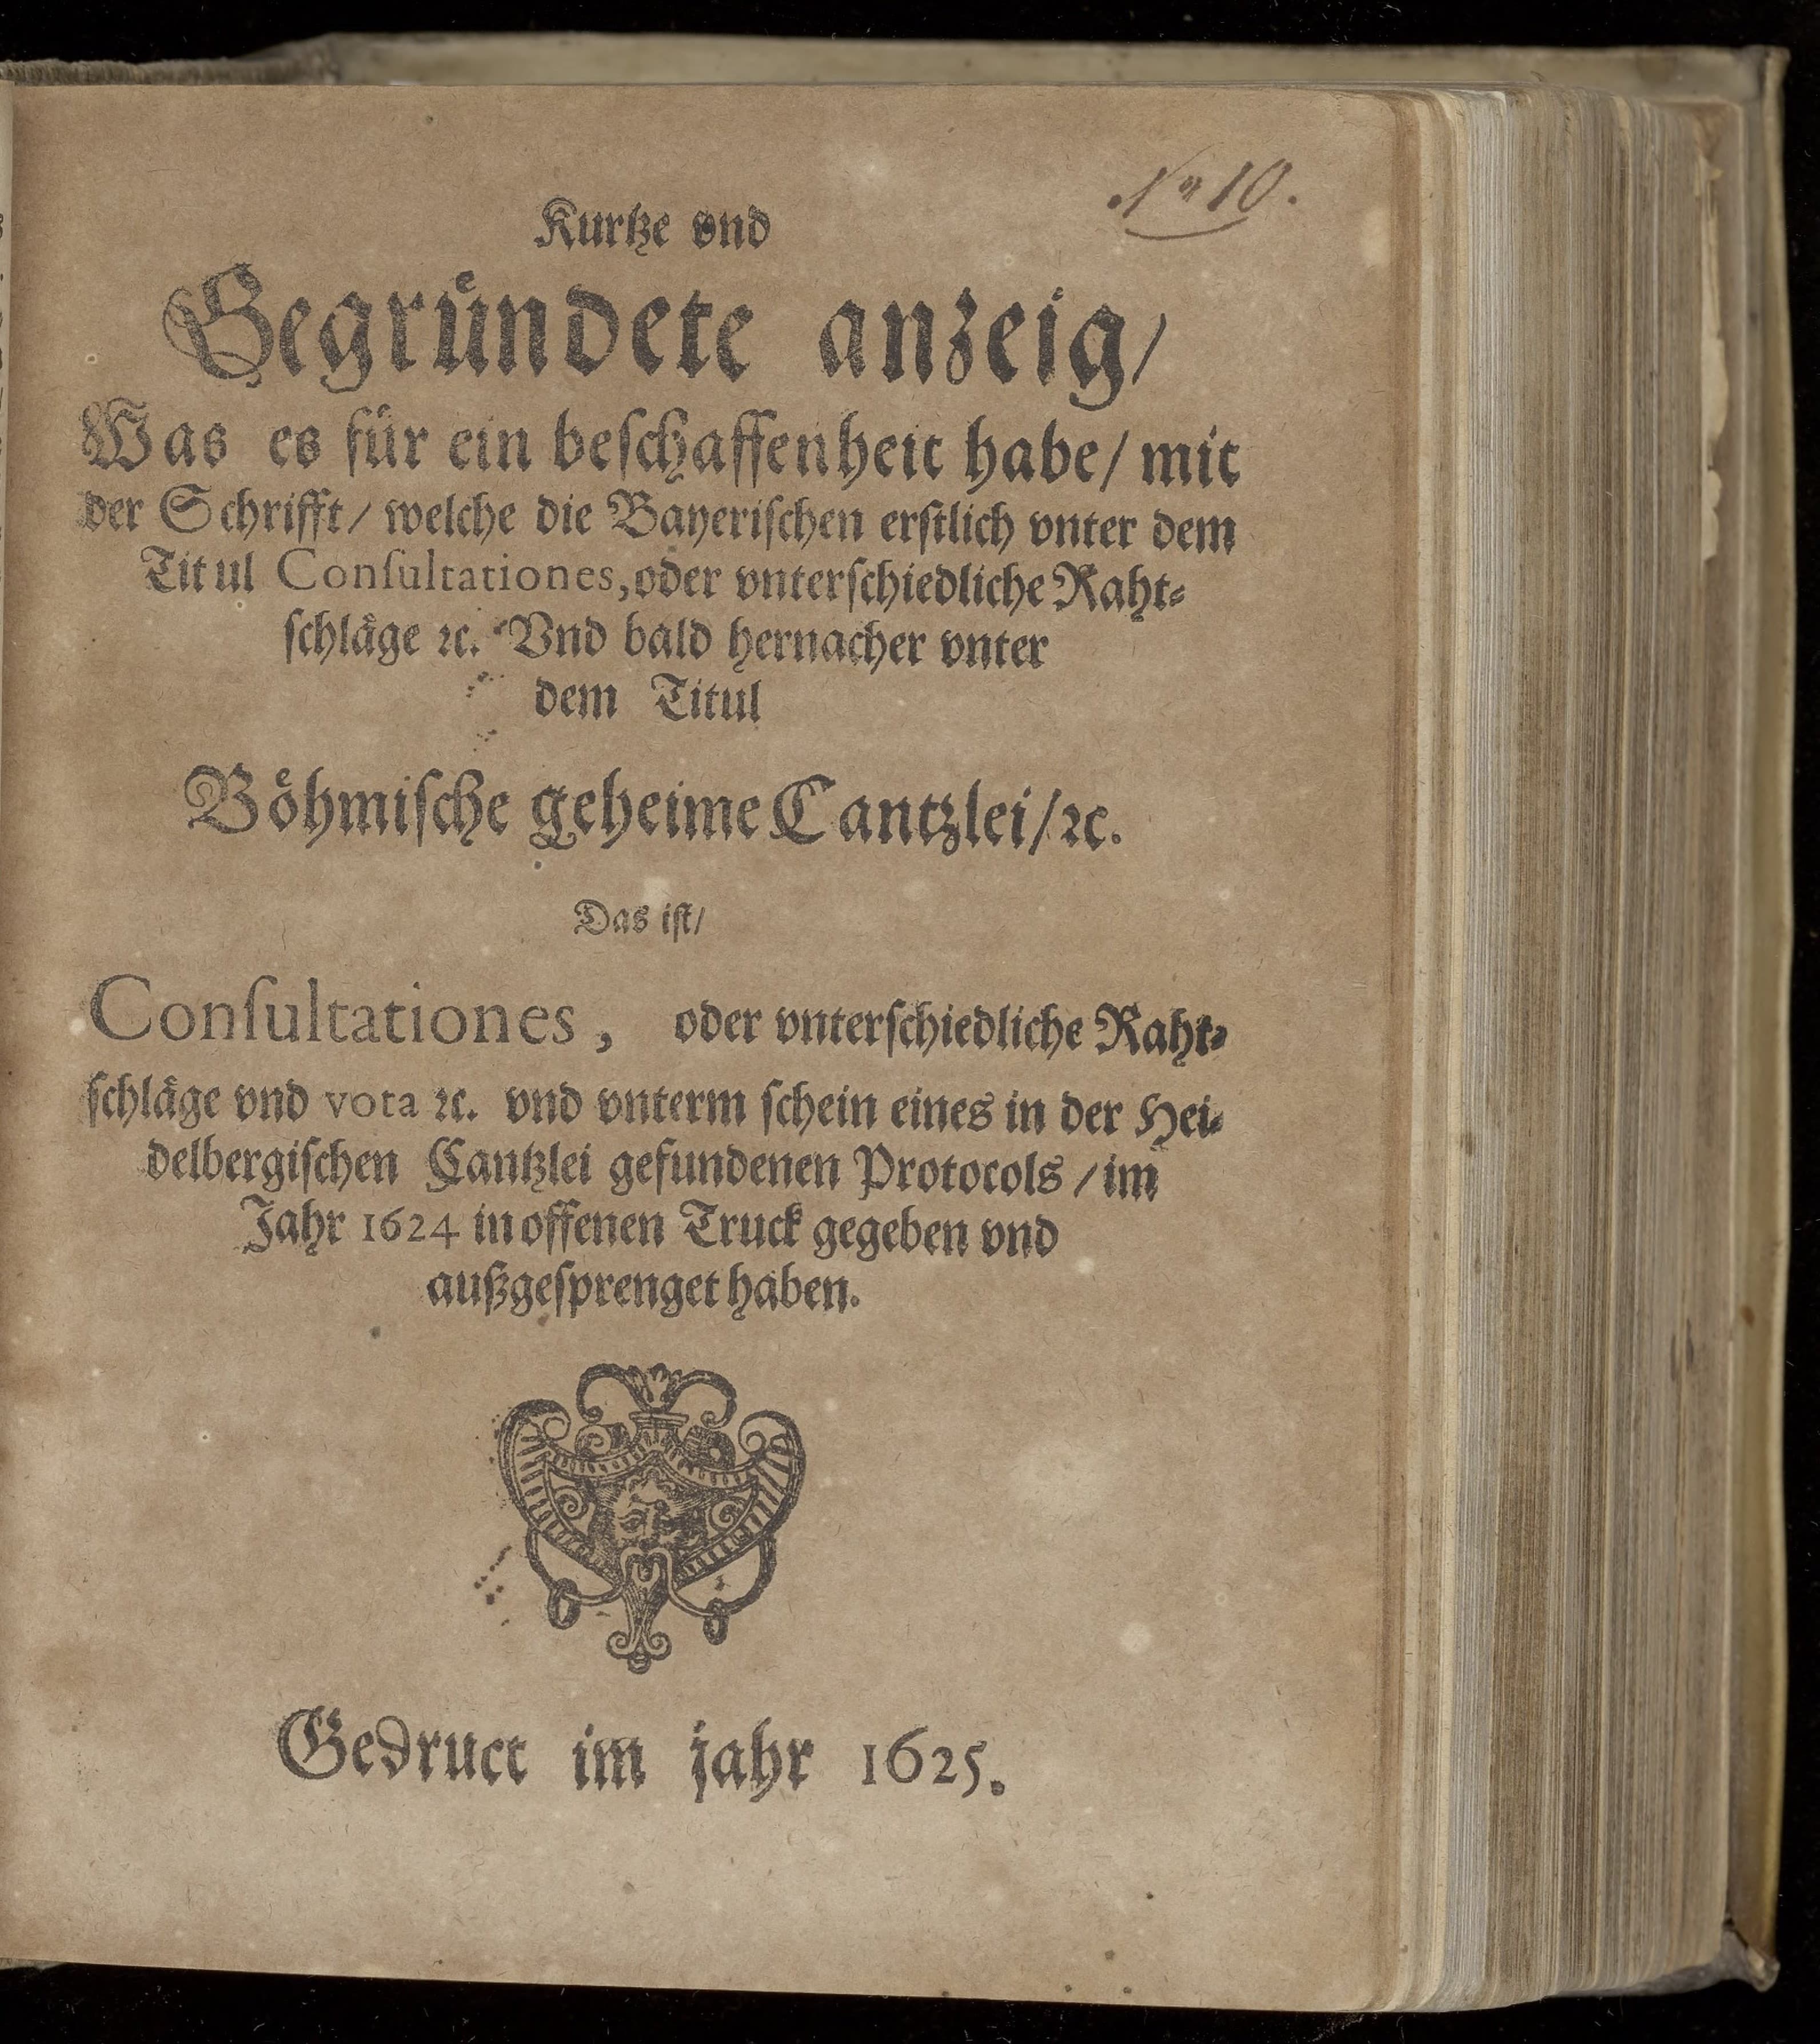 Nº 10.
Kurtze vnd
Gegründete anzeig/
Was es für ein beſchaffenheit habe/ mit
der Schrifft/ welche die Bayeriſchen erſtlich vnter dem
Titul Conſultationes, oder vnterſchiedliche Raht⸗
ſchläge ꝛc. Vnd bald hernacher vnter
dem Titul
Böhmiſche geheime Cantzlei/ꝛc.
Das iſt/
Conſultationes, oder vnterſchiedliche Raht⸗
ſchläge vnd vota ꝛc. vnd vnterm ſchein eines in der Hei⸗
delbergiſchen Cantzlei gefundenen Protocols /im
Jahr 1624 in offenen Truck gegeben vnd
außgeſprenget haben.
Gedruct im jahr 1625.